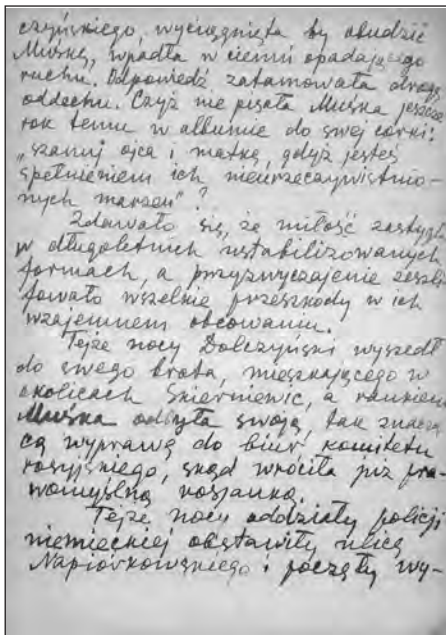 czyńskiego, wyciągnięta by obudzić
Muśkę, wpadła w ciemń opadającego
ruchu. Odpowiedź zatamowała drogę
oddechu. Czyż nie pisała Muśka jeszcze
rok temu w albumie do swej córki:
„szanuj ojca i matkę, gdyż jesteś
spełnieniem ich nieurzeczywistnio-
nych marzeń"?
Zdawało się, że miłość zastygła
w długoletnich ustabilizowanych
formach, a przyzwyczajenie zeszli-
fowało wszelkie przeszkody w ich
wzajemnem obcowaniu.
Tejże nocy Dolczyński wyszedł
do swego brata, mieszkającego w
okolicach Skierniewic, a rankiem
Muśka odbyła swoją, tak znaczą-
cą wyprawę do biur komitetu
rosyjskiego, skąd wróciła już pra-
womyślną rosjanką.
Tejże nocy oddziały policji
niemieckiej obstawiły ulicę
Napiórkowskiego i poczęły wy-